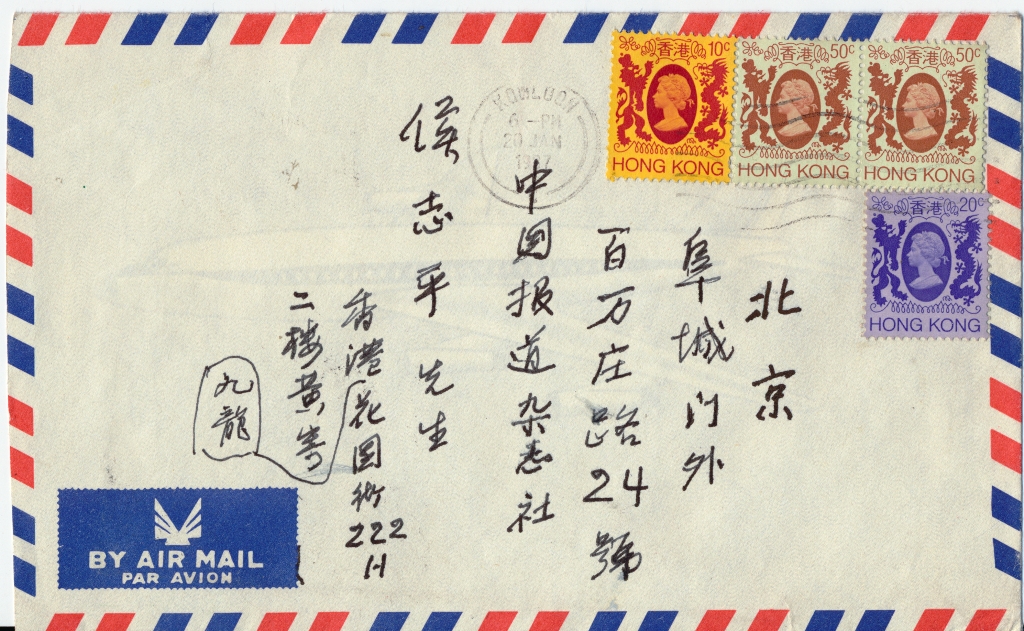 香港 10c
HONG KONG
香港 50c
HONG KONG
香港 50c
HONG KONG
香港 20c
HONG KONG
KOWLOON
6 - PM
20 JAN
北京
阜城门外
百万庄路24號
中国报道杂志社
侯志平先生
香港花园街222
二楼黄寄
九龍
BY AIR MAIL
PAR AVION